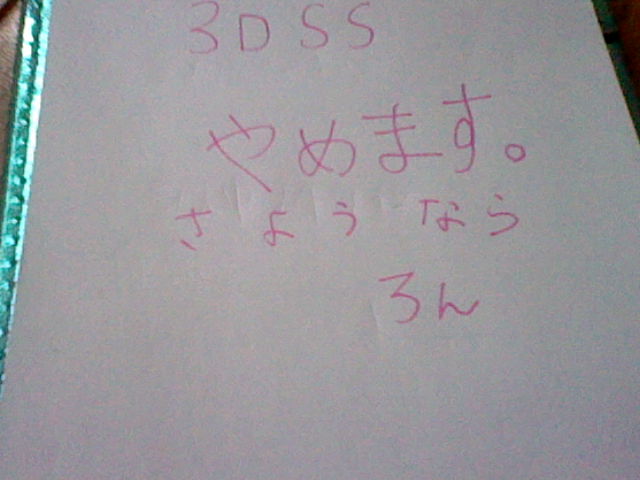 3DSS
やめます。
さようなら
ろん